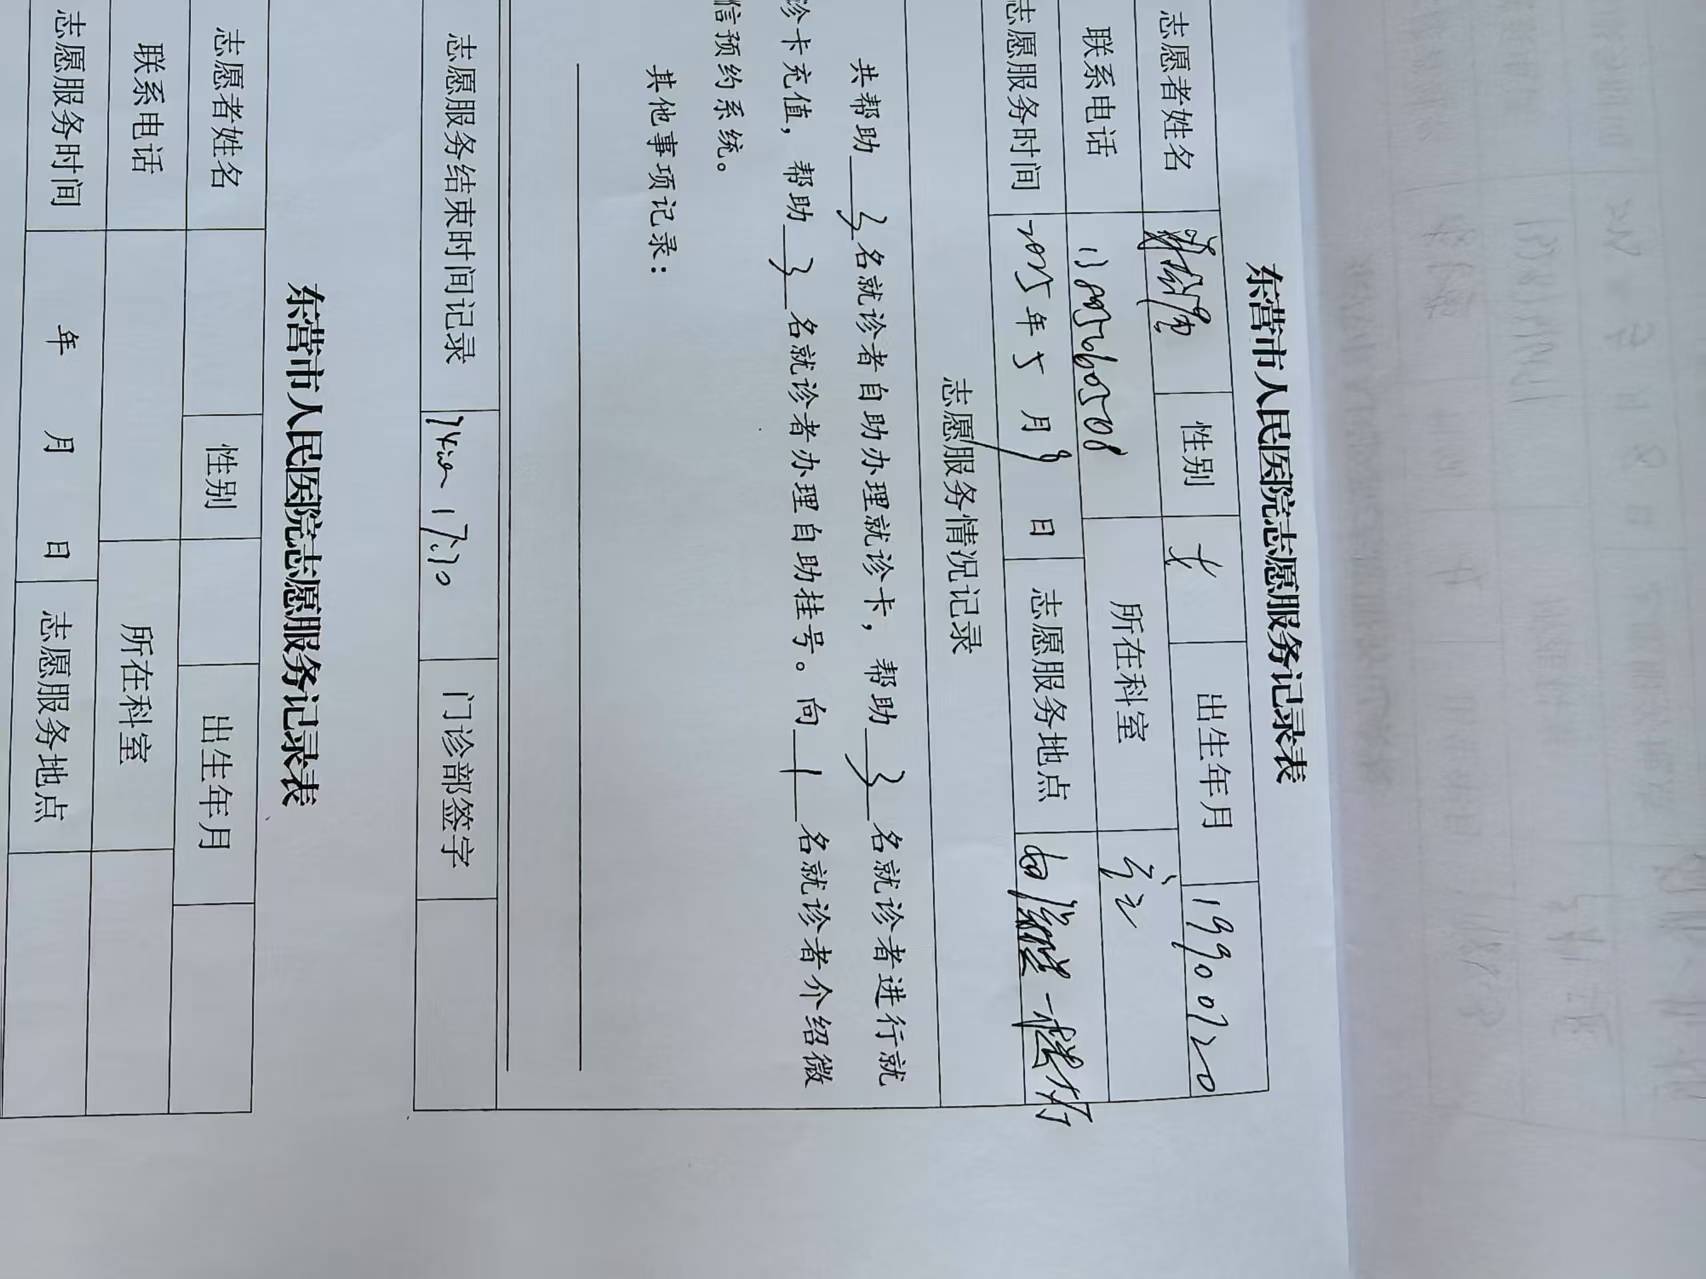 东营市人民医院志愿服务记录表
志愿者姓名 性别 女 出生年月 19900720
联系电话 所在科室
志愿服务时间 2025年5月9日 志愿服务地点
志愿服务情况记录
共帮助 3 名就诊者自助办理就诊卡，帮助 3 名就诊者进行就
诊卡充值，帮助 3 名就诊者办理自助挂号。向 1 名就诊者介绍微
信预约系统。
其他事项记录：
志愿服务结束时间记录 17:30 门诊部签字
东营市人民医院志愿服务记录表
志愿者姓名 性别 出生年月
联系电话 所在科室
志愿服务时间 年 月 日 志愿服务地点